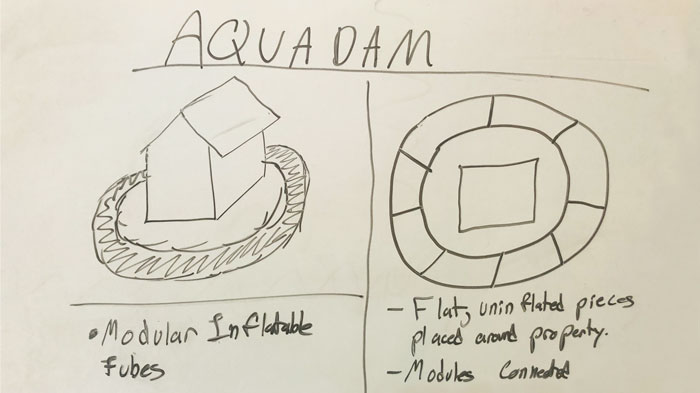 AQUADAM
• Modular Inflatable
Tubes
- Flat, uninflated pieces
placed around property.
- Modules Connected